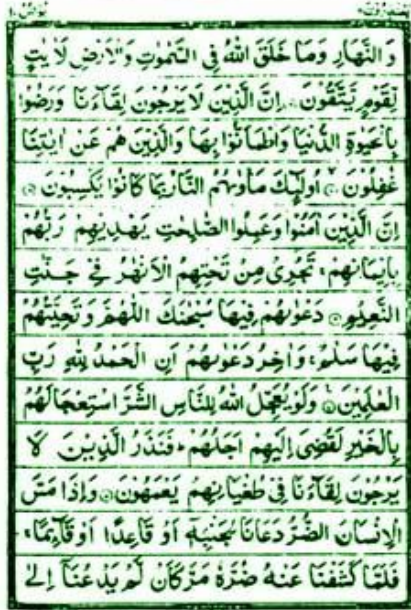 وَ النَّهَارِ وَمَا خَلَقَ اللّٰهُ فِی السَّمٰوٰتِ وَالْاَرْضِ لَاٰیٰتٍ
لِّقَوْمٍ یَّتَّقُوْنَ۝ اِنَّ الَّذِیْنَ لَا یَرْجُوْنَ لِقَآءَنَا وَرَضُوْا
بِالْحَیٰوةِ الدُّنْیَا وَاطْمَاَنُّوْا بِهَا وَالَّذِیْنَ هُمْ عَنْ اٰیٰتِنَا
غٰفِلُوْنَ۝ اُولٰٓئِكَ مَاْوٰىهُمُ النَّارُ بِمَا كَانُوْا یَكْسِبُوْنَ۝
اِنَّ الَّذِیْنَ اٰمَنُوْا وَعَمِلُوا الصّٰلِحٰتِ یَهْدِیْهِمْ رَبُّهُمْ
بِاِیْمَانِهِمْ ۚ تَجْرِیْ مِنْ تَحْتِهِمُ الْاَنْهٰرُ فِیْ جَنّٰتِ
النَّعِیْمِ۝ دَعْوٰىهُمْ فِیْهَا سُبْحٰنَكَ اللّٰهُمَّ وَتَحِیَّتُهُمْ
فِیْهَا سَلٰمٌ ۚ وَاٰخِرُ دَعْوٰىهُمْ اَنِ الْحَمْدُ لِلّٰهِ رَبِّ
الْعٰلَمِیْنَ۝ وَلَوْ یُعَجِّلُ اللّٰهُ لِلنَّاسِ الشَّرَّ اسْتِعْجَالَهُمْ
بِالْخَیْرِ لَقُضِیَ اِلَیْهِمْ اَجَلُهُمْ ؕ فَنَذَرُ الَّذِیْنَ لَا
یَرْجُوْنَ لِقَآءَنَا فِیْ طُغْیَانِهِمْ یَعْمَهُوْنَ۝ وَاِذَا مَسَّ
الْاِنْسَانَ الضُّرُّ دَعَانَا لِجَنْۢبِهٖۤ اَوْ قَاعِدًا اَوْ قَآئِمًا ۚ
فَلَمَّا كَشَفْنَا عَنْهُ ضُرَّهٗ مَرَّ كَاَنْ لَّمْ یَدْعُنَاۤ اِلٰى